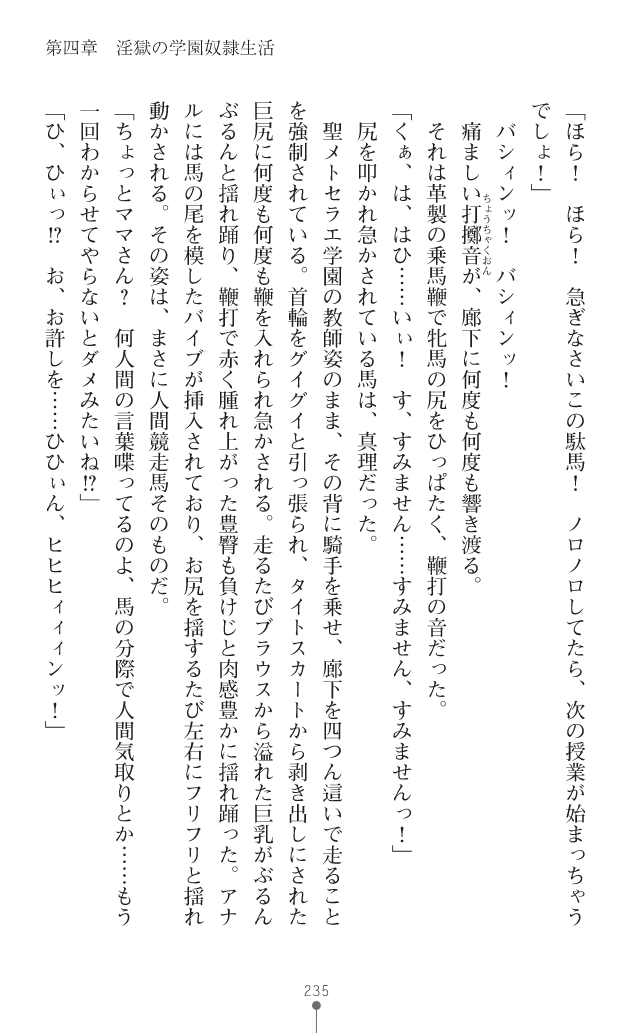 第四章　淫獄の学園奴隷生活
「ほら！　ほら！　急ぎなさいこの駄馬！　ノロノロしてたら、次の授業が始まっちゃう
でしょ！」
バシィンッ！　バシィンッ！
痛ましい打擲音が、廊下に何度も何度も響き渡る。
ちょうちゃくおん
それは革製の乗馬鞭で牝馬の尻をひっぱたく、鞭打の音だった。
「くぁ、は、はひ……いぃ！　す、すみません……すみません、すみませんっ！」
尻を叩かれ急かされている馬は、真理だった。
聖メトセラエ学園の教師姿のまま、その背に騎手を乗せ、廊下を四つん這いで走ること
を強制されている。首輪をグイグイと引っ張られ、タイトスカートから剥き出しにされた
巨尻に何度も何度も鞭を入れられ急かされる。走るたびブラウスから溢れた巨乳がぶるん
ぶるんと揺れ踊り、鞭打で赤く腫れ上がった豊臀も負けじと肉感豊かに揺れ踊った。アナ
ルには馬の尾を模したバイブが挿入されており、お尻を揺するたび左右にフリフリと揺れ
動かされる。その姿は、まさに人間競走馬そのものだ。
「ちょっとママさん？　何人間の言葉喋ってるのよ、馬の分際で人間気取りとか……もう
一回わからせてやらないとダメみたいね!?」
「ひ、ひぃっ!?　お、お許しを……ひひぃん、ヒヒヒィィィンッ！」
235